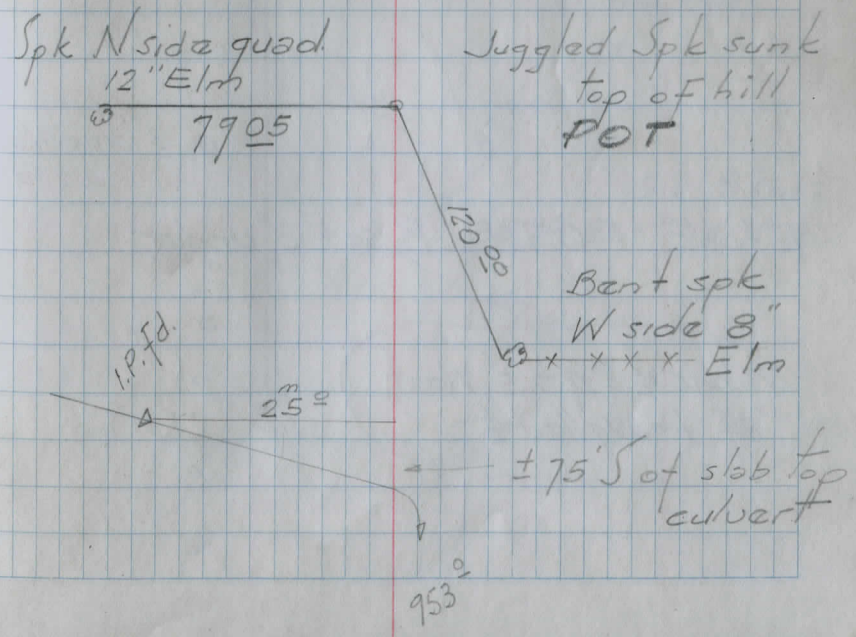 Spk N side quad.
12" Elm
79 05
Juggled Spk sunk
top of hill
POT
120.00
Bent spk
W side 8"
Elm
I.P. fd.
m
25 0
± 75' S of slab top
culvert
953 0